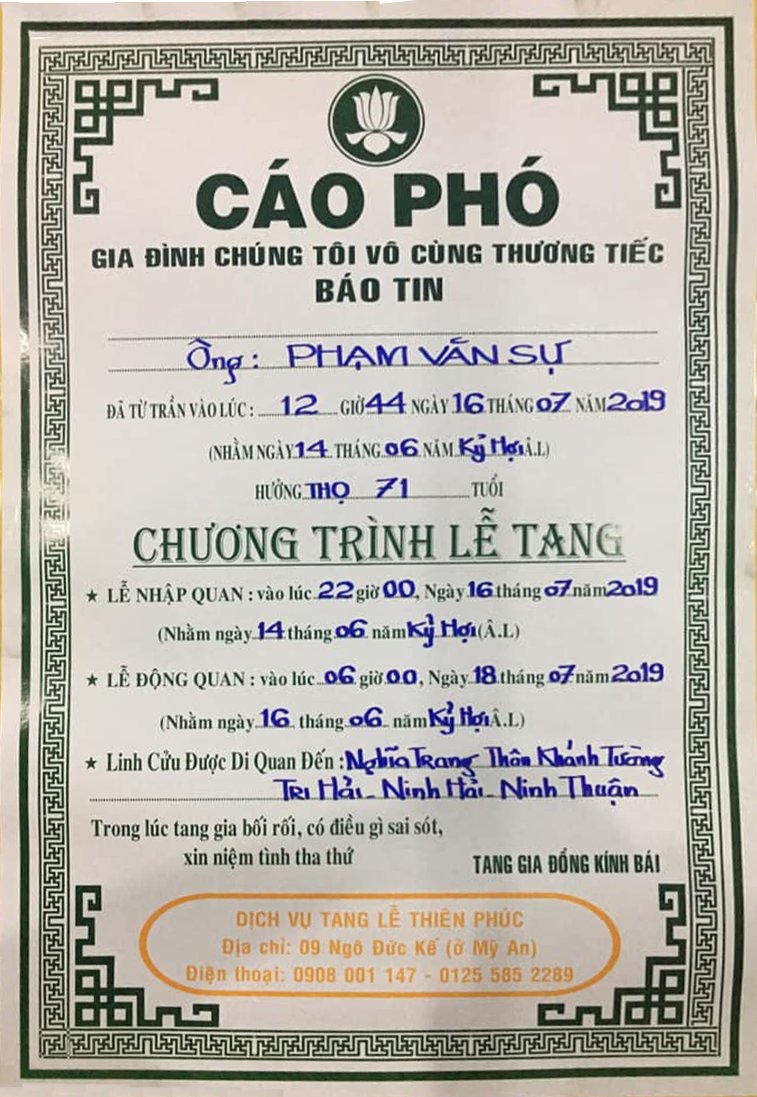 CÁO PHÓ
GIA ĐÌNH CHÚNG TÔI VÔ CÙNG THƯƠNG TIẾC
BÁO TIN
Ông: PHẠM VĂN SỰ
ĐÃ TỪ TRẦN VÀO LÚC: 12 GIỜ 44 NGÀY 16 THÁNG 07 NĂM 2019
(NHẰM NGÀY 14 THÁNG 06 NĂM Kỷ Hợi Â.L)
HƯỞNG THỌ 71 TUỔI
CHƯƠNG TRÌNH LỄ TANG
★ LỄ NHẬP QUAN : vào lúc 22 giờ 00, Ngày 16 tháng 07 năm 2019
(Nhằm ngày 14 tháng 06 năm Kỷ Hợi (Â.L)
★ LỄ ĐỘNG QUAN : vào lúc 06 giờ 00, Ngày 18 tháng 07 năm 2019
(Nhằm ngày 16 tháng 06 năm Kỷ Hợi Â.L)
★ Linh Cửu Được Di Quan Đến : Nghĩa Trang Thôn Khánh Tường
Tri Hải - Ninh Hải - Ninh Thuận
Trong lúc tang gia bối rối, có điều gì sai sót,
xin niệm tình tha thứ
TANG GIA ĐỒNG KÍNH BÁI
DỊCH VỤ TANG LỄ THIÊN PHÚC
Địa chỉ: 09 Ngô Đức Kế (ở Mỹ An)
Điện thoại: 0908 001 147 - 0125 585 2289